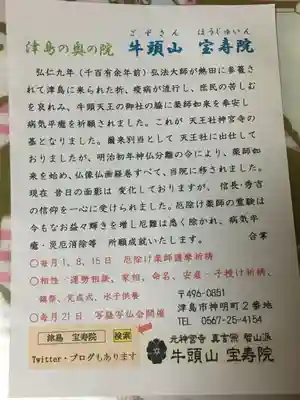 ごずさん ほうじゅいん
津島の奥の院 牛頭山 宝寿院
弘仁九年(千百有余年前)弘法大師が熱田に参籠され
て津島に来られた折、疫病が流行し、庶民の苦しむ
を哀れみ、牛頭天王の御社の脇に薬師如来を奉安し
病気平癒を祈願されました。これが 天王社神宮寺の
基となりました。爾来別当として 天王社に出仕して
おりましたが、明治初年神仏分離の令により、薬師如
来を始め、仏像仏画経巻すべて、当院に移されました。
現在 昔日の面影は 変化しておりますが、信長・秀吉
の信仰を一心に受けられました。厄除け薬師の霊験は
今もなお益々輝きを増し厄難は悉く除かれ、病気平
癒・災厄消除等 所願成就いたします。 合掌
○毎月1、8、15日 厄除け薬師護摩祈祷
○相性・運勢相談、家相、命名、安産・子授け祈祷、
鎮祭、完成式、水子供養
○毎月21日 写経写仏会開催
〒496-0851
津島市神明町2番地
TEL 0567-25-4154
津島 宝寿院 検索
Twitter・ブログもあります
元神宮寺 真言宗 智山派
牛頭山 宝寿院